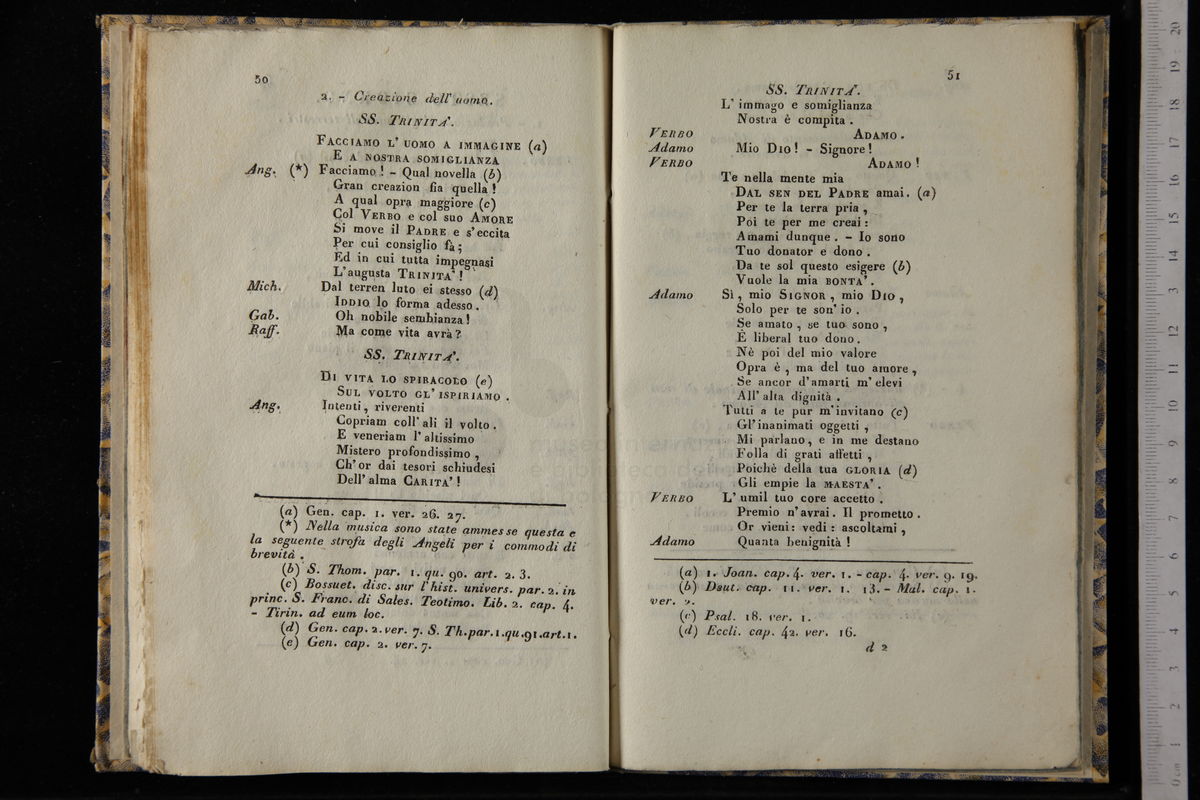 50
2. - Creazione dell' uomo.
SS. TRINITA'.
FACCIAMO L' UOMO A IMMAGINE (a)
E A NOSTRA SOMIGLIANZA
Ang. (*) Facciamo! - Qual novella (b)
Gran creazion fia quella!
A qual opra maggiore (c)
Col VERBO e col suo AMORE
Si move il PADRE e s'eccita
Per cui consiglio fà;
Ed in cui tutta impegnasi
L'augusta TRINITA'!
Mich. Dal terren luto ei stesso (d)
IDDIO lo forma adesso.
Gab. Oh nobile sembianza!
Raff. Ma come vita avrà?
SS. TRINITA'.
DI VITA LO SPIRACOLO (e)
SUL VOLTO GL' ISPIRIAMO.
Ang. Intenti, riverenti
Copriam coll' ali il volto.
E veneriam l' altissimo
Mistero profondissimo,
Ch'or dai tesori schiudesi
Dell' alma CARITA'!
(a) Gen. cap. 1. ver. 26. 27.
(*) Nella musica sono state ammesse questa e
la seguente strofa degli Angeli per i commodi di
brevità.
(b) S. Thom. par. 1. qu. 90. art. 2. 3.
(c) Bossuet. disc. sur l'hist. univers. par. 2. in
princ. S. Franc. di Sales. Teotimo. Lib. 2. cap. 4.
- Tirin. ad eum loc.
(d) Gen. cap. 2. ver. 7. S. Th. par. 1. qu. 91. art. 1.
(e) Gen. cap. 2. ver. 7.
51
SS. TRINITA'.
L' immago e somiglianza
Nostra è compita.
VERBO ADAMO.
Adamo Mio DIO! - Signore!
VERBO ADAMO!
Te nella mente mia
DAL SEN DEL PADRE amai. (a)
Per te la terra pria,
Poi te per me creai:
Amami dunque. - Io sono
Tuo donator e dono.
Da te sol questo esigere (b)
Vuole la mia BONTA'.
Adamo Sì, mio SIGNOR, mio DIO,
Solo per te son' io.
Se amato, se tuo sono,
È liberal tuo dono.
Nè poi del mio valore
Opra è, ma del tuo amore,
Se ancor d'amarti m' elevi
All' alta dignità.
Tutti a te pur m'invitano (c)
Gl'inanimati oggetti,
Mi parlano, e in me destano
Folla di grati affetti,
Poichè della tua GLORIA (d)
Gli empie la MAESTA'.
VERBO L' umil tuo core accetto.
Premio n'avrai. Il prometto.
Or vieni: vedi: ascoltami,
Adamo Quanta benignità!
(a) 1. Joan. cap. 4. ver. 1. - cap. 4. ver. 9. 19.
(b) Deut. cap. 11. ver. 1. 13. - Mal. cap. 1.
ver. 2.
(c) Psal. 18. ver. 1.
(d) Eccli. cap. 42. ver. 16.
d 2